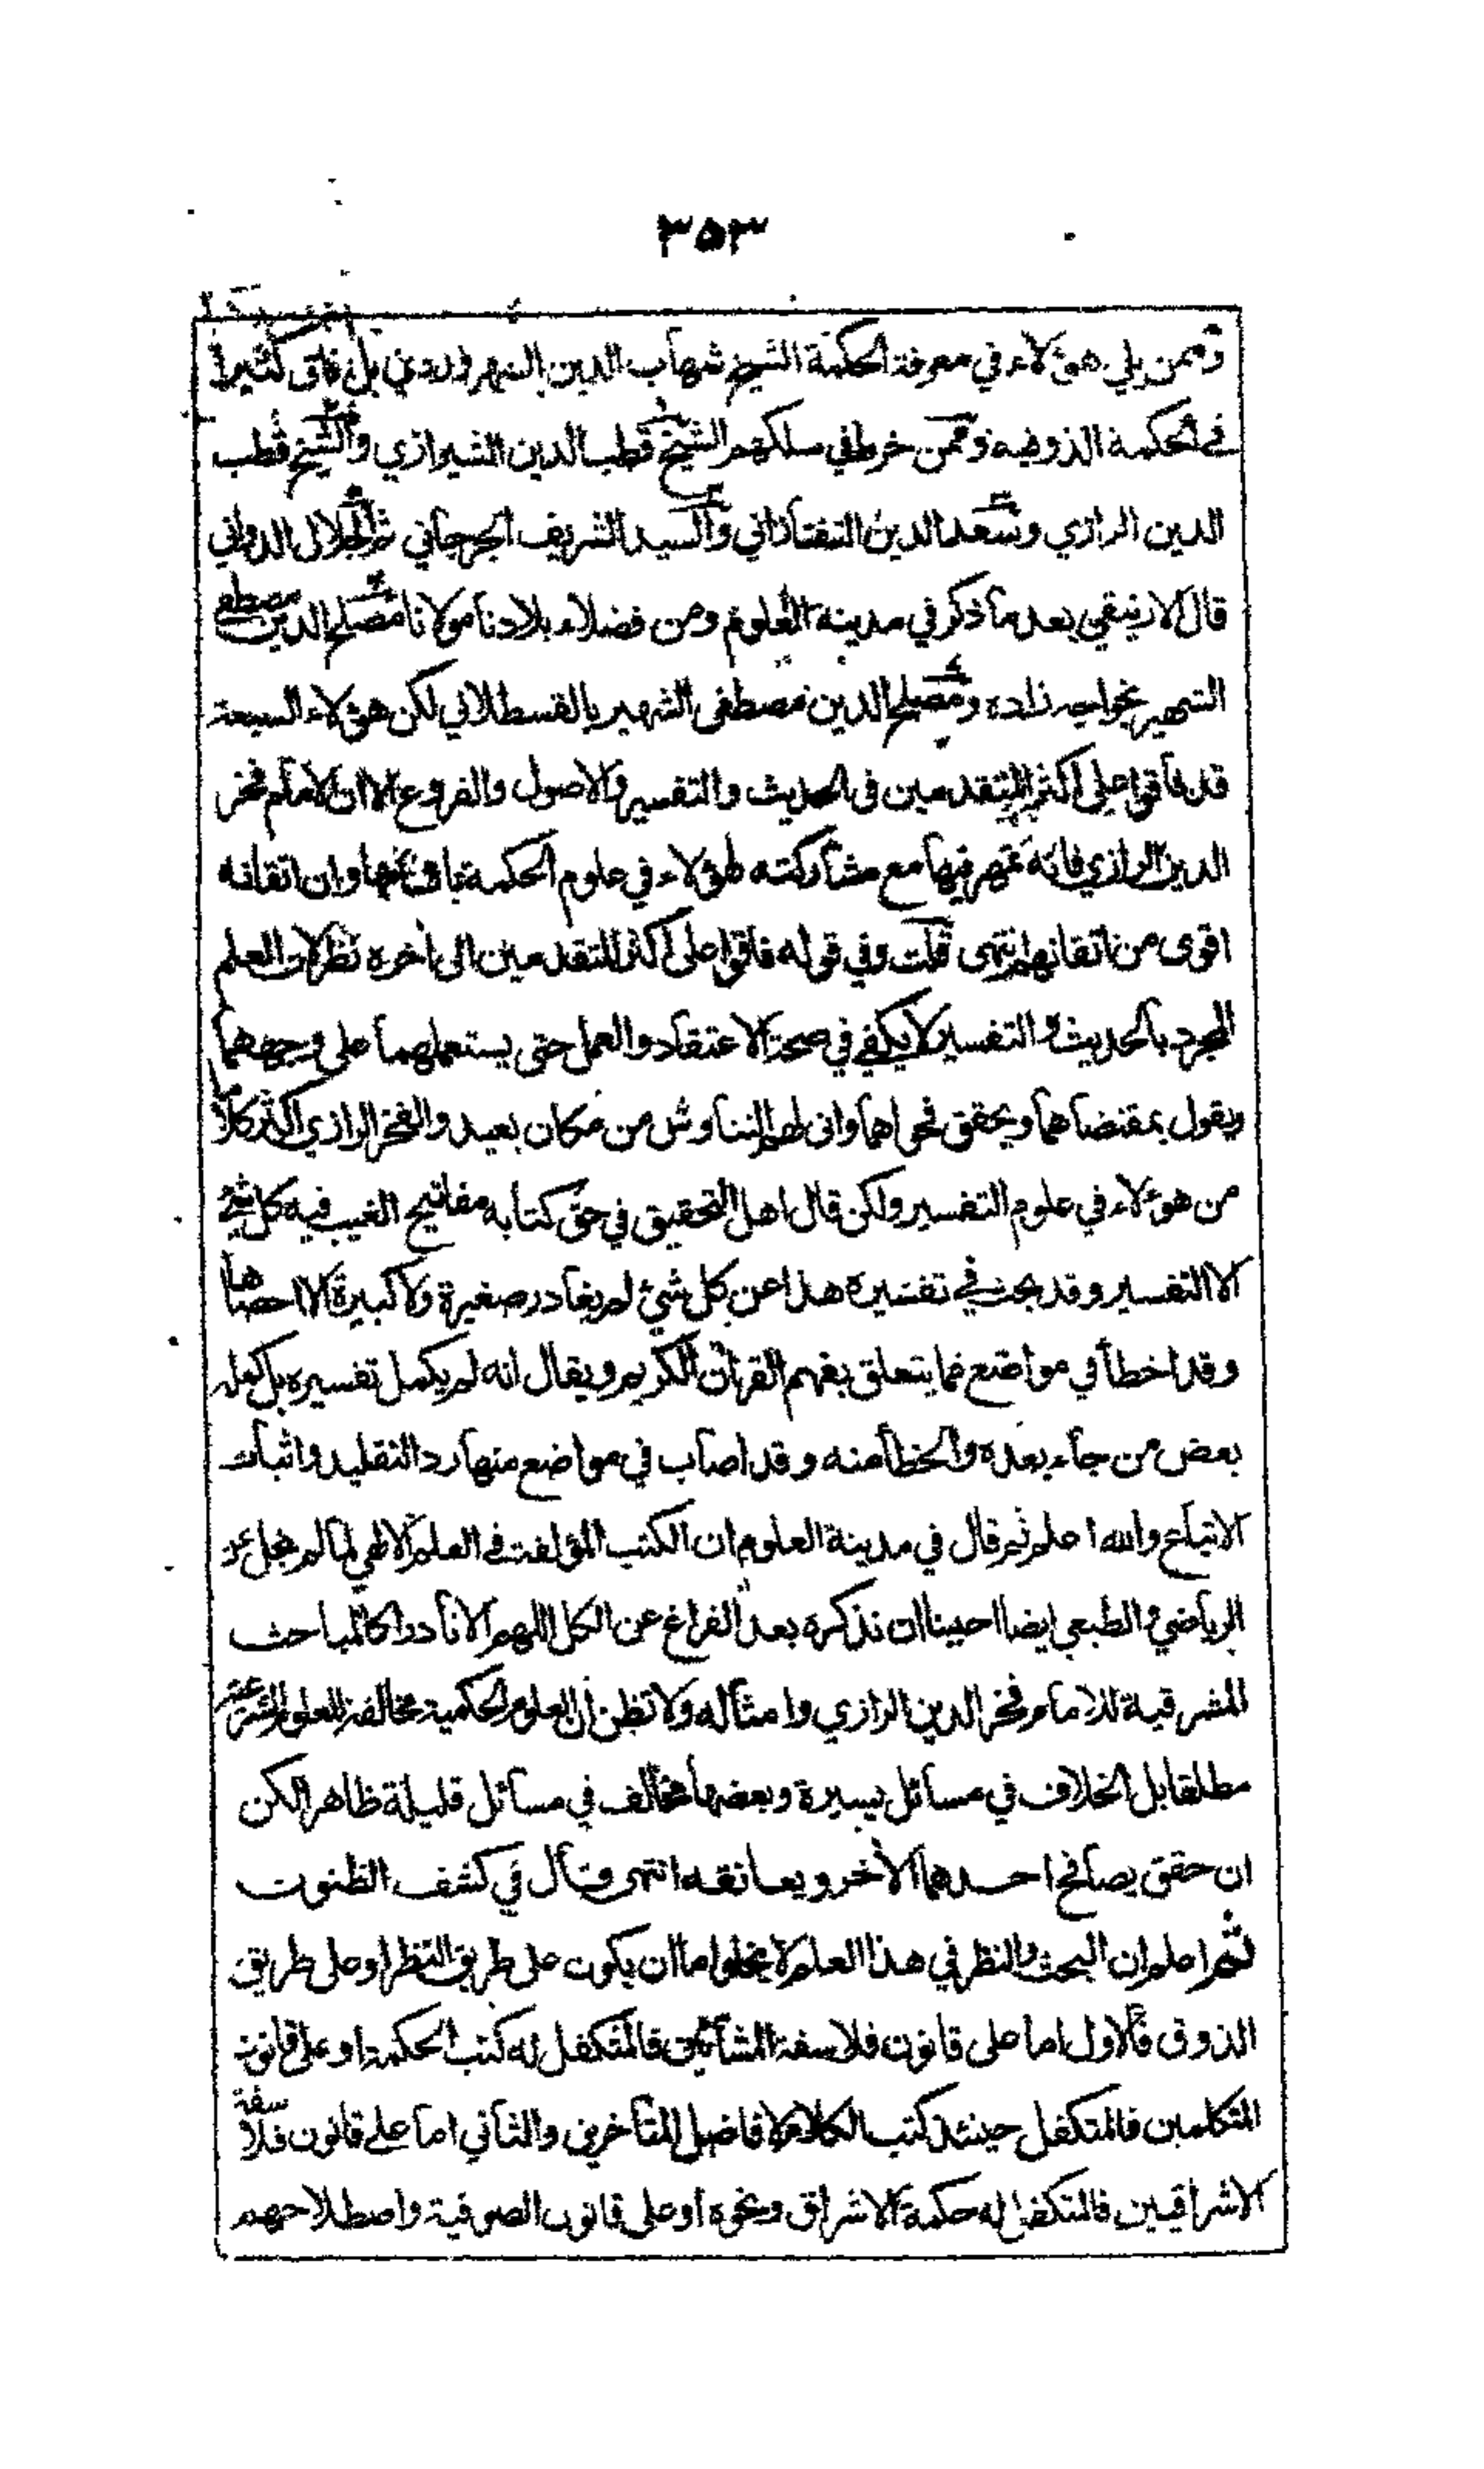 ٣٥٣
وممن يلي هؤلاء في معرفة الحكمة الشيخ شهاب الدين السهروردي بل فاق كثيرا
في الحكمة الذوقية وممن خرط في سلكهم الشيخ قطب الدين الشيرازي والشيخ قطب
الدين الرازي وسعد الدين التفتازاني والسيد الشريف الجرجاني ثم الجلال الدواني
قال الارنيقي بعد ما ذكر في مدينة العلوم ومن فضلاء بلادنا مولانا مصلح الدين مصطفى
الشهير بخواجه زاده ومصلح الدين مصطفى الشهير بالقسطلاني لكن هؤلاء السبعة
قد فاقوا على اكثر المتقدمين في الحديث والتفسير والاصول والفروع الا ان الامام فخر
الدين الرازي فانه تمهر فيها مع مشاركته لهؤلاء في علوم الحكمة باقسامها وان اتقانه
اقوى من اتقانهم انتهى قلت وفي قوله فاقوا على اكثر المتقدمين الى أخره نظر لان العلم
المجرد بالحديث والتفسير لا يكفي في صحة الاعتقاد والعمل حتى يستعملهما على وجههما
ويقول بمقتضاهما ويحقق فحواهما وانى لهم التناوش من مكان بعيد والفخر الرازي اكثر كلاما
من هؤلاء في علوم التفسير ولكن قال اهل التحقيق في حق كتابه مفاتيح الغيب فيه كل شئ
الا التفسير وقد بحث في تفسيره هذا عن كل شئ لم يغادر صغيرة ولا كبيرة الا احصاها
وقد اخطأ في مواضع مما يتعلق بفهم القرآن الكريم ويقال انه لم يكمل تفسيره بل كمله
بعض من جاء بعده والخطأ منه وقد اصاب في مواضع منها رد التقليد واثبات
الاتباع والله اعلم ثم قال في مدينة العلوم ان الكتب المؤلفة في العلم الالهي لما لم تخل عن
الرياضي والطبعي ايضا احببنا ان نذكره بعد الفراغ عن الكل اللهم الا نادرا كالمباحث
المشرقية للامام فخر الدين الرازي وامثاله ولا تظن أن العلوم الحكمية مخالفة للعلوم الشرعية
مطلقا بل الخلاف في مسائل يسيرة وبعضها مخالف في مسائل قليلة ظاهرا لكن
ان حقق يصافح احدهما الأخر ويعانقه انتهى وقال في كشف الظنون
ثم اعلم ان البحث والنظر في هذا العلم لا يخلوا ما ان يكون على طريق النظر او على طريق
الذوق فالاول اما على قانون فلاسفة المشائين فالمتكفل له كتب الحكمة او على قانون
المتكلمين فالمتكفل حينئذ كتب الكلام لافاضل المتأخرين والثاني اما على قانون فلاسفة
الاشراقيين فالمتكفل له حكمة الاشراق ونحوه او على قانون الصوفية واصطلاحهم